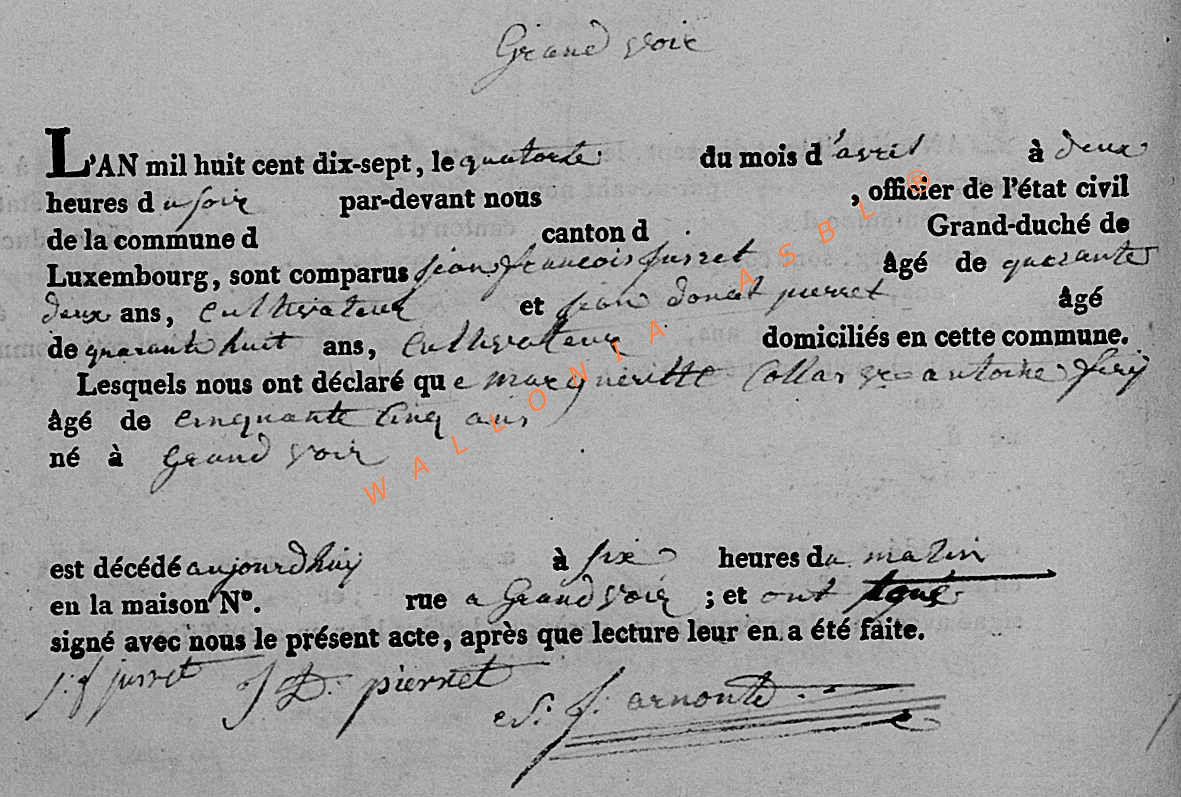 Grand Voir
L'AN mil huit cent dix-sept, le quatorze du mois d'avril à deux
heures du soir par-devant nous , officier de l'état civil
de la commune d canton d Grand-duché de
Luxembourg, sont comparus jean francois jusret âgé de quarante
deux ans, cultivateur et jean donat pierret âgé
de quarante huit ans, cultivateur domiciliés en cette commune.
Lesquels nous ont déclaré que margueritte Collar antoine
âgé de cinquante cinq ans
né à Grand Voir
est décédé aujourdhuy à six heures du matin
en la maison N°. rue a Grand Voir ; et ont signé
signé avec nous le présent acte, après que lecture leur en a été faite.
j: f jusret J D. pierret f. arnould
WALLONIA ASBL ®